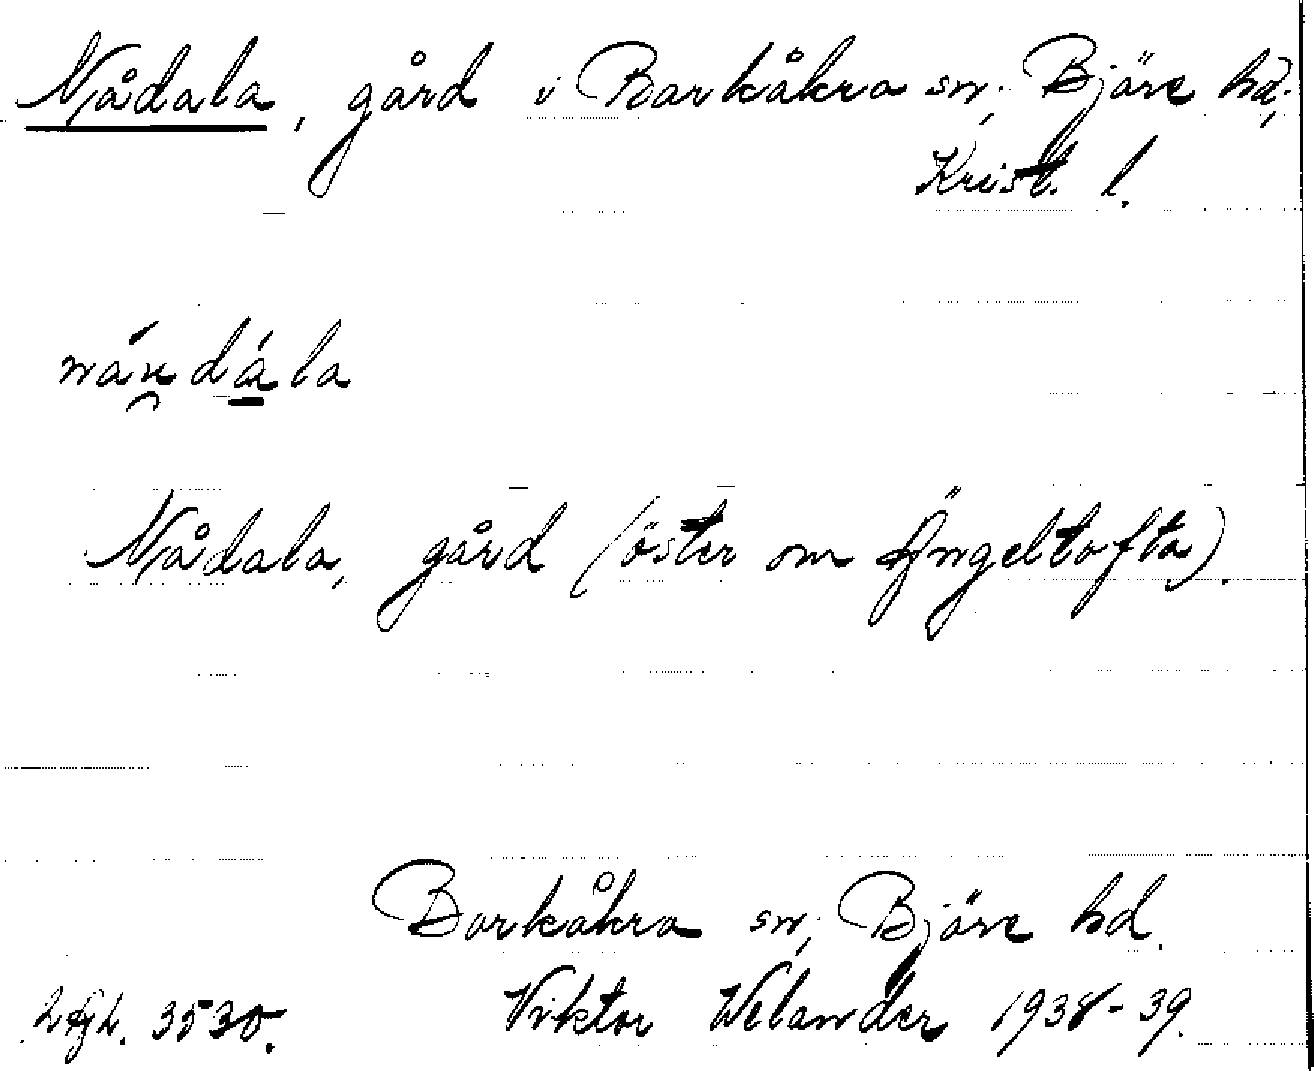 Nådala, gård i Barkåkra sn; Bjäre hd;
Krist. l.
Nådala, gård (öster om Ängeltofta).
Barkåkra sn; Bjäre hd.
3530. Viktor Welander 1938-39.